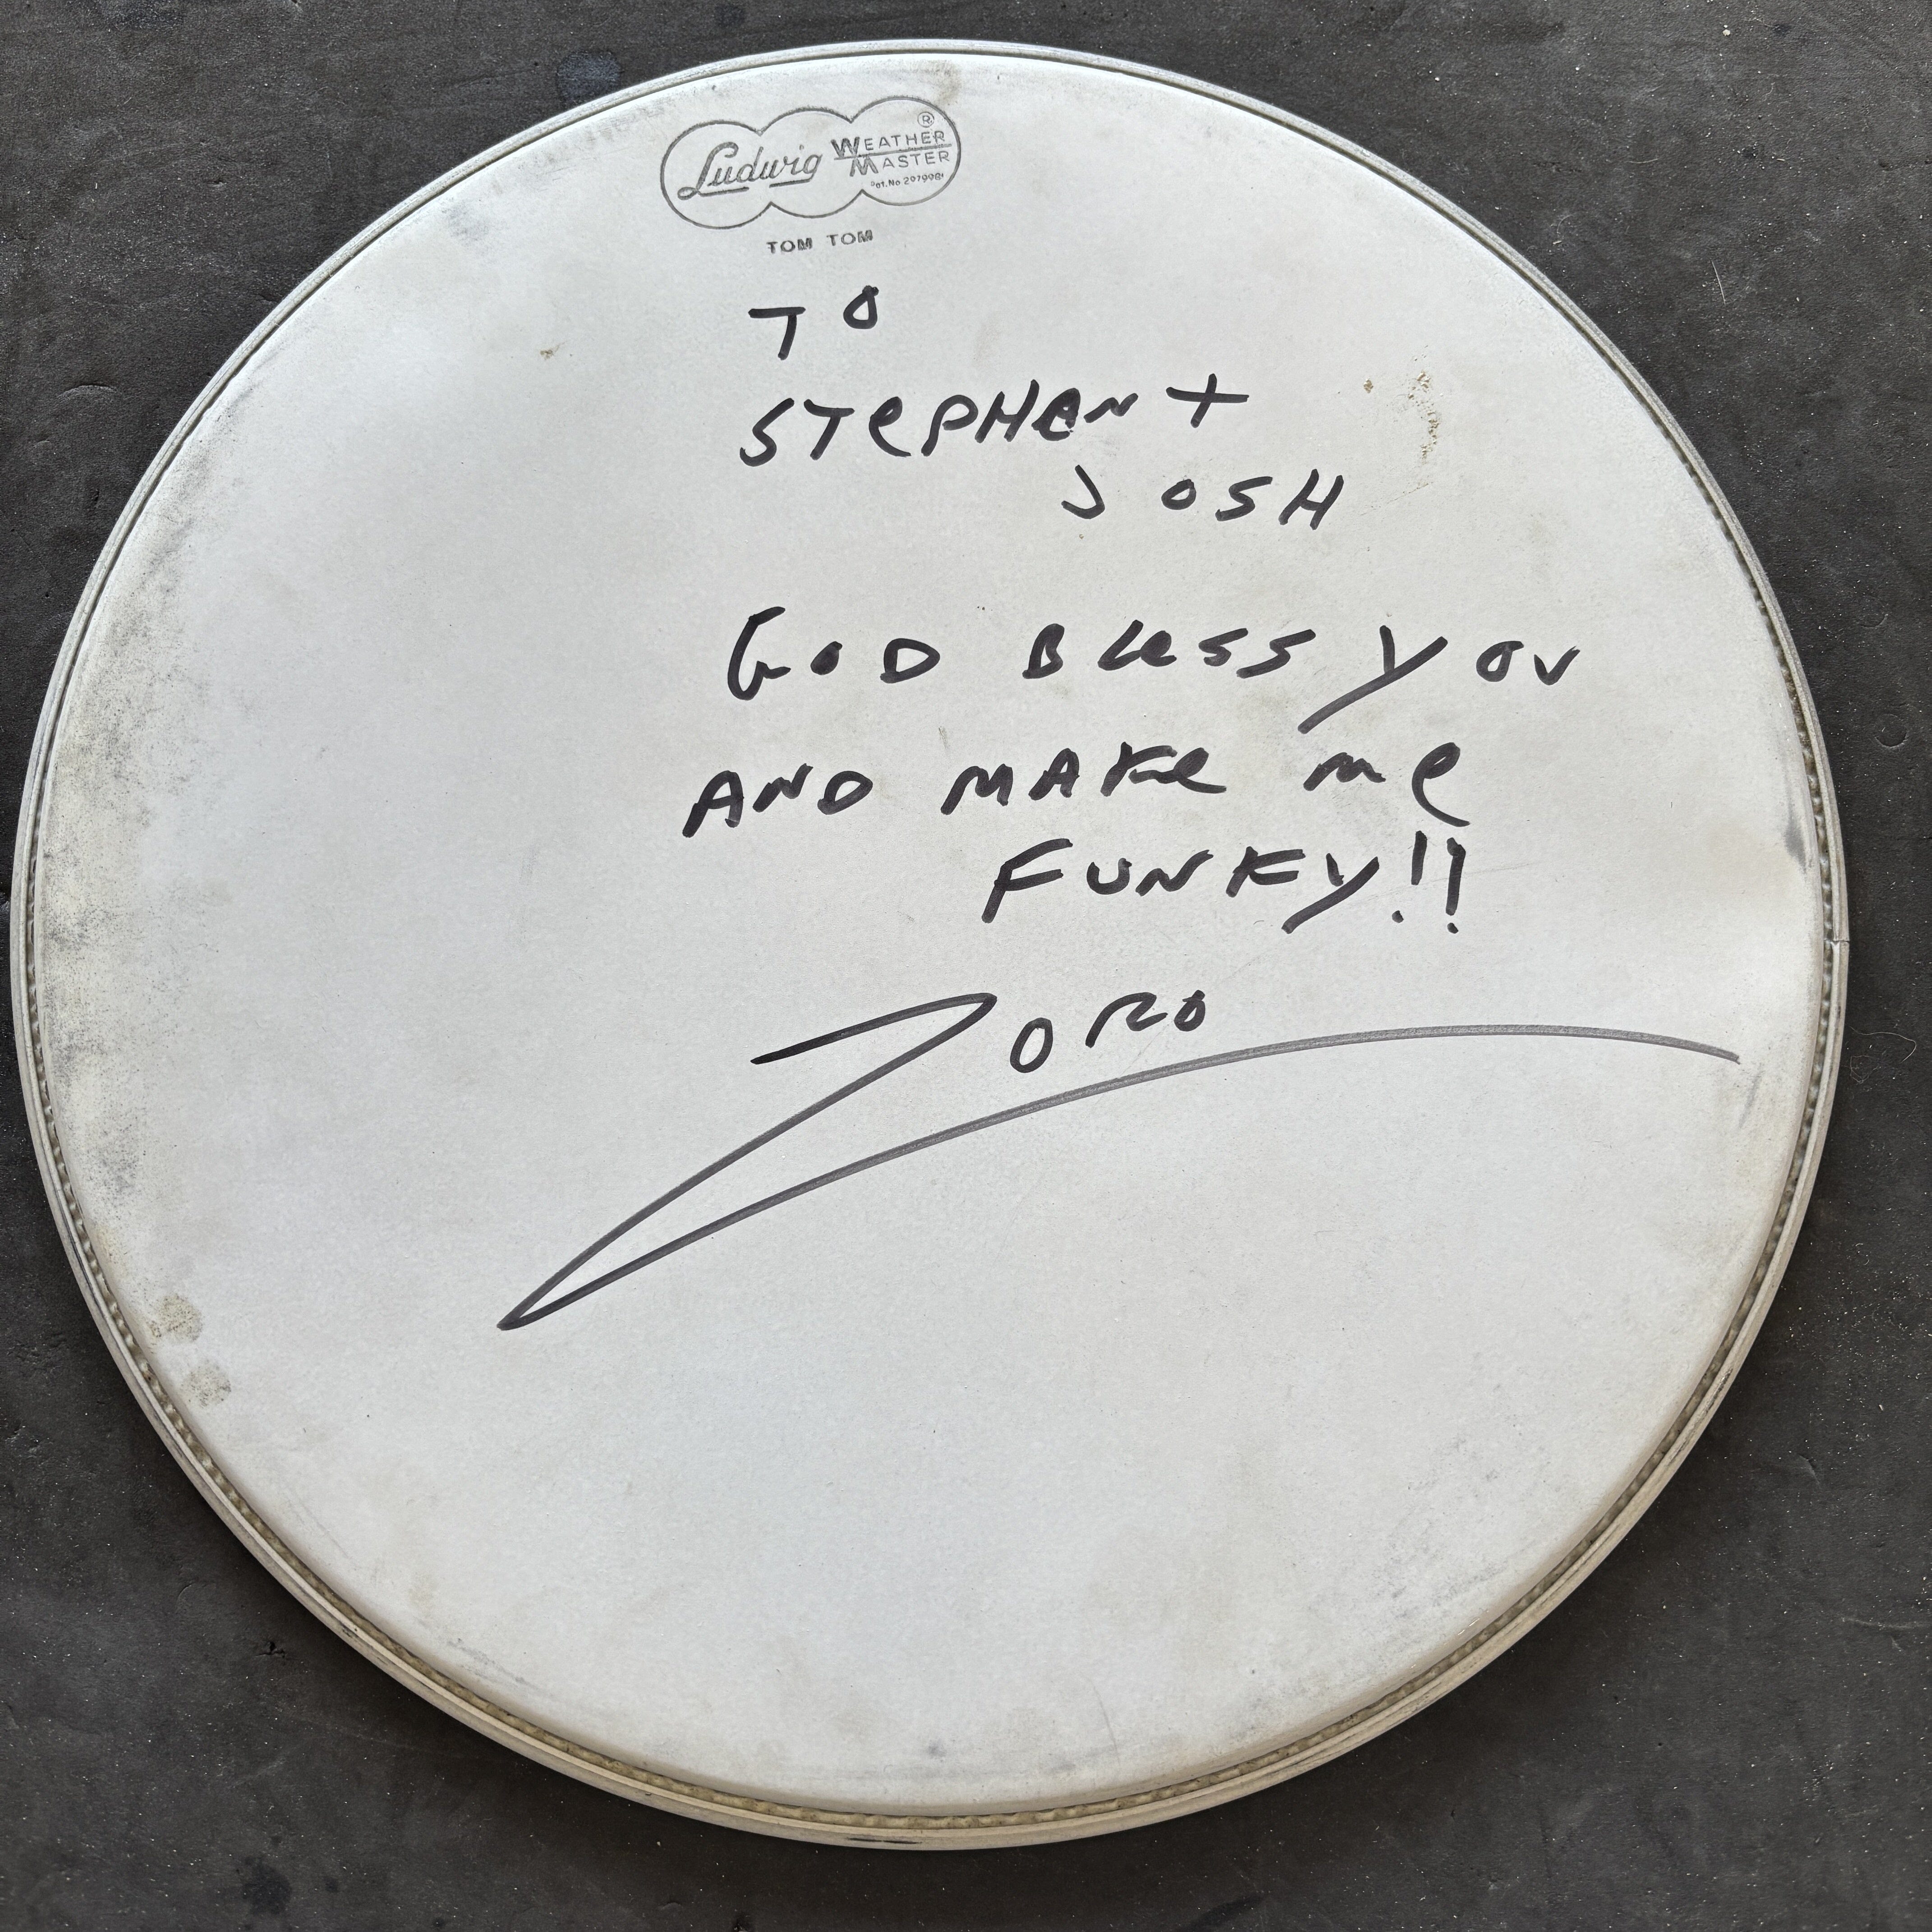 Ludwig WEATHER MASTER ®
TOM TOM
TO
STePHeN +
JOSH
GOD BLess YOU
AND MAKe Me
FUNKY!!
ZORO